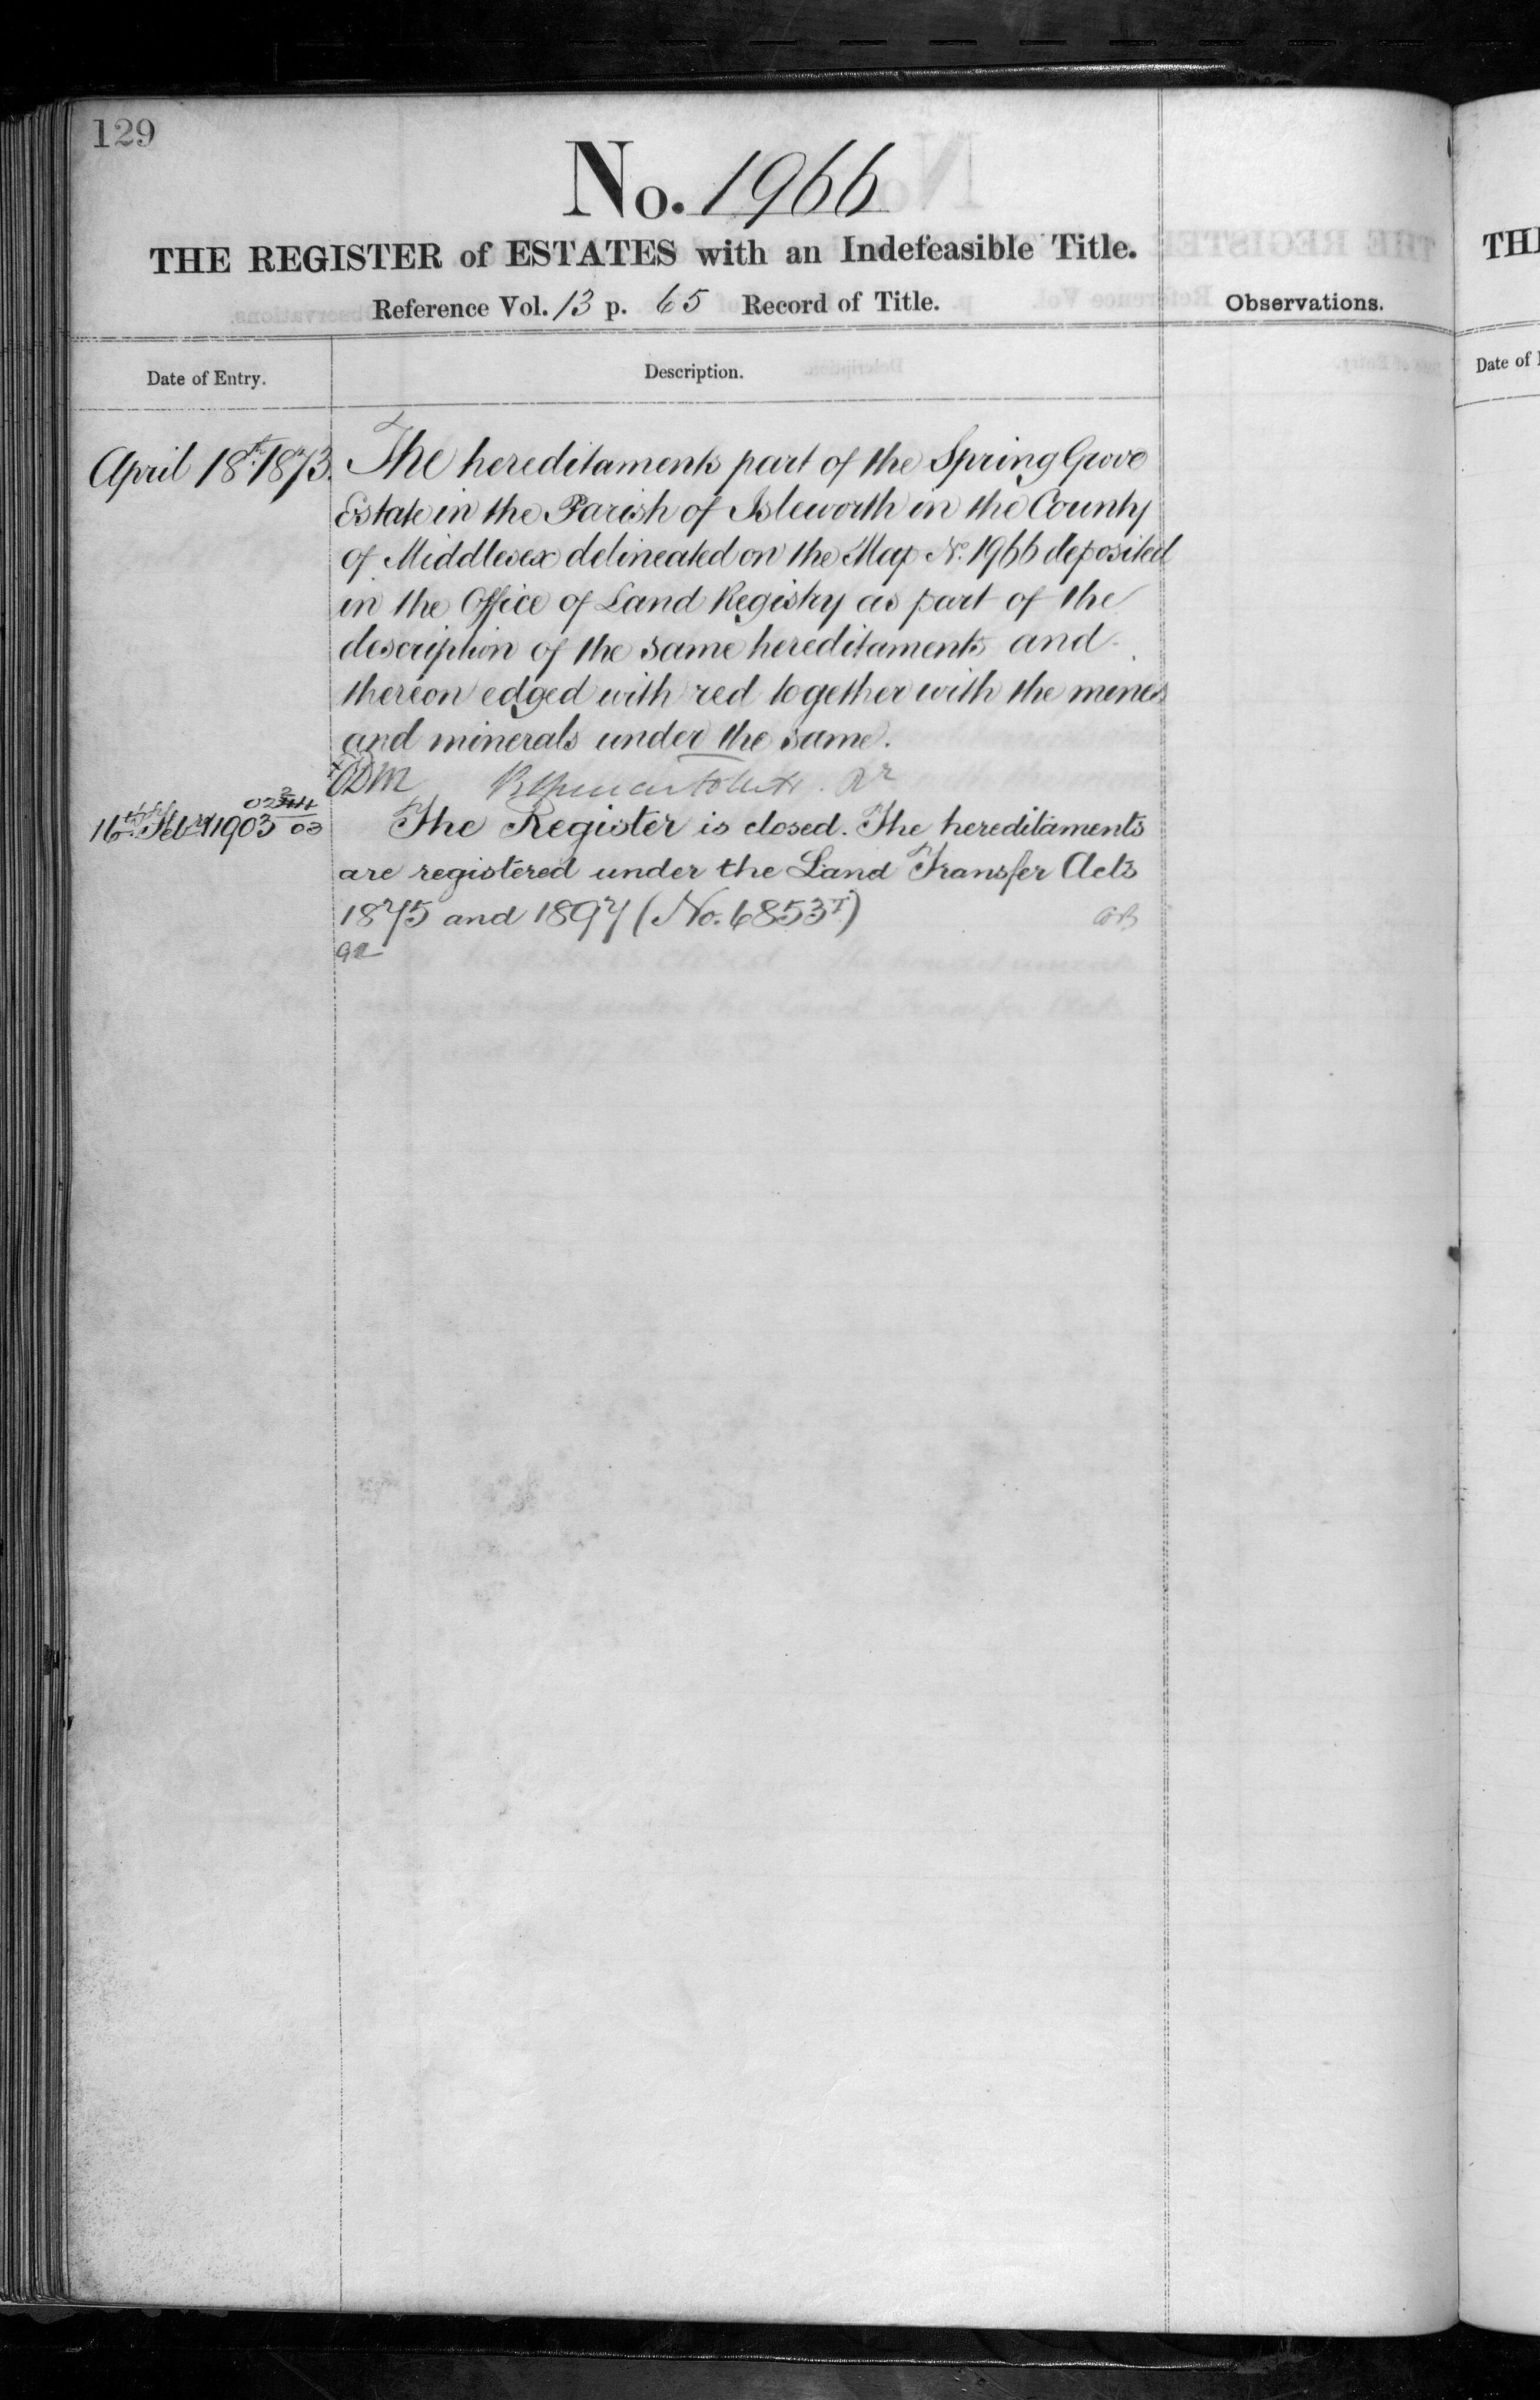 129
No. 1966
THE REGISTER of ESTATES with an Indefeasible Title.
Reference Vol. 13 p. 65 Record of Title.
Observations.
Date of Entry.
Description.
April 18th 1873.
The hereditaments part of the Spring Grove
Estate in the Parish of Isleworth in the County
of Middlesex delineated on the Map No. 1966 deposited
in the Office of Land Registry as part of the
description of the same hereditaments and
thereon edged with red together with the mines
and minerals under the same.
16th Febry 1903
The Register is closed. The hereditaments
are registered under the Land Transfer Acts
1875 and 1897 (No. 6853I)
THE
Date of